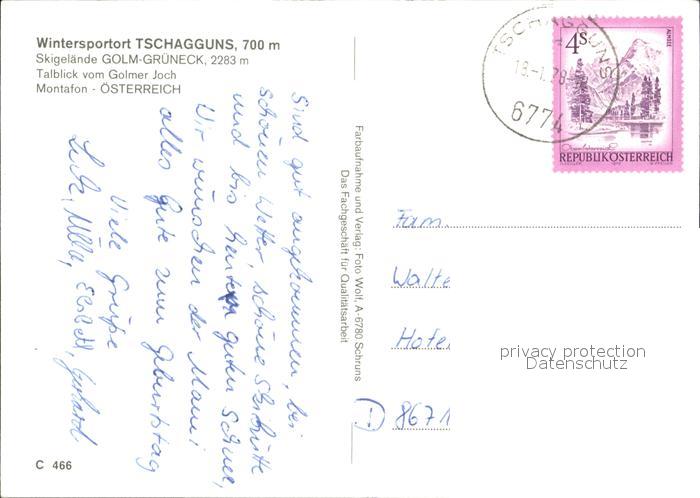 Wintersportort TSCHAGGUNS, 700 m
Skigelände GOLM-GRÜNECK, 2283 m
Talblick vom Golmer Joch
Montafon - ÖSTERREICH
Sind gut angekommen, bei
schönem Wetter, schöne Skihütte
und bis heute guten Schnee,
Wir wünschen der Mami
alles Gute zum Geburtstag
Viele Grüße
Gerhard
C 466
Farbaufnahme und Verlag: Foto Wolf, A-6780 Schruns
Das Fachgeschäft für Qualitätsarbeit
TSCHAGGUNS
18.-1.78
6774
4S
ALMSEE
REPUBLIK ÖSTERREICH
Fam.
Walte
Hofe
D 8671
privacy protection
Datenschutz